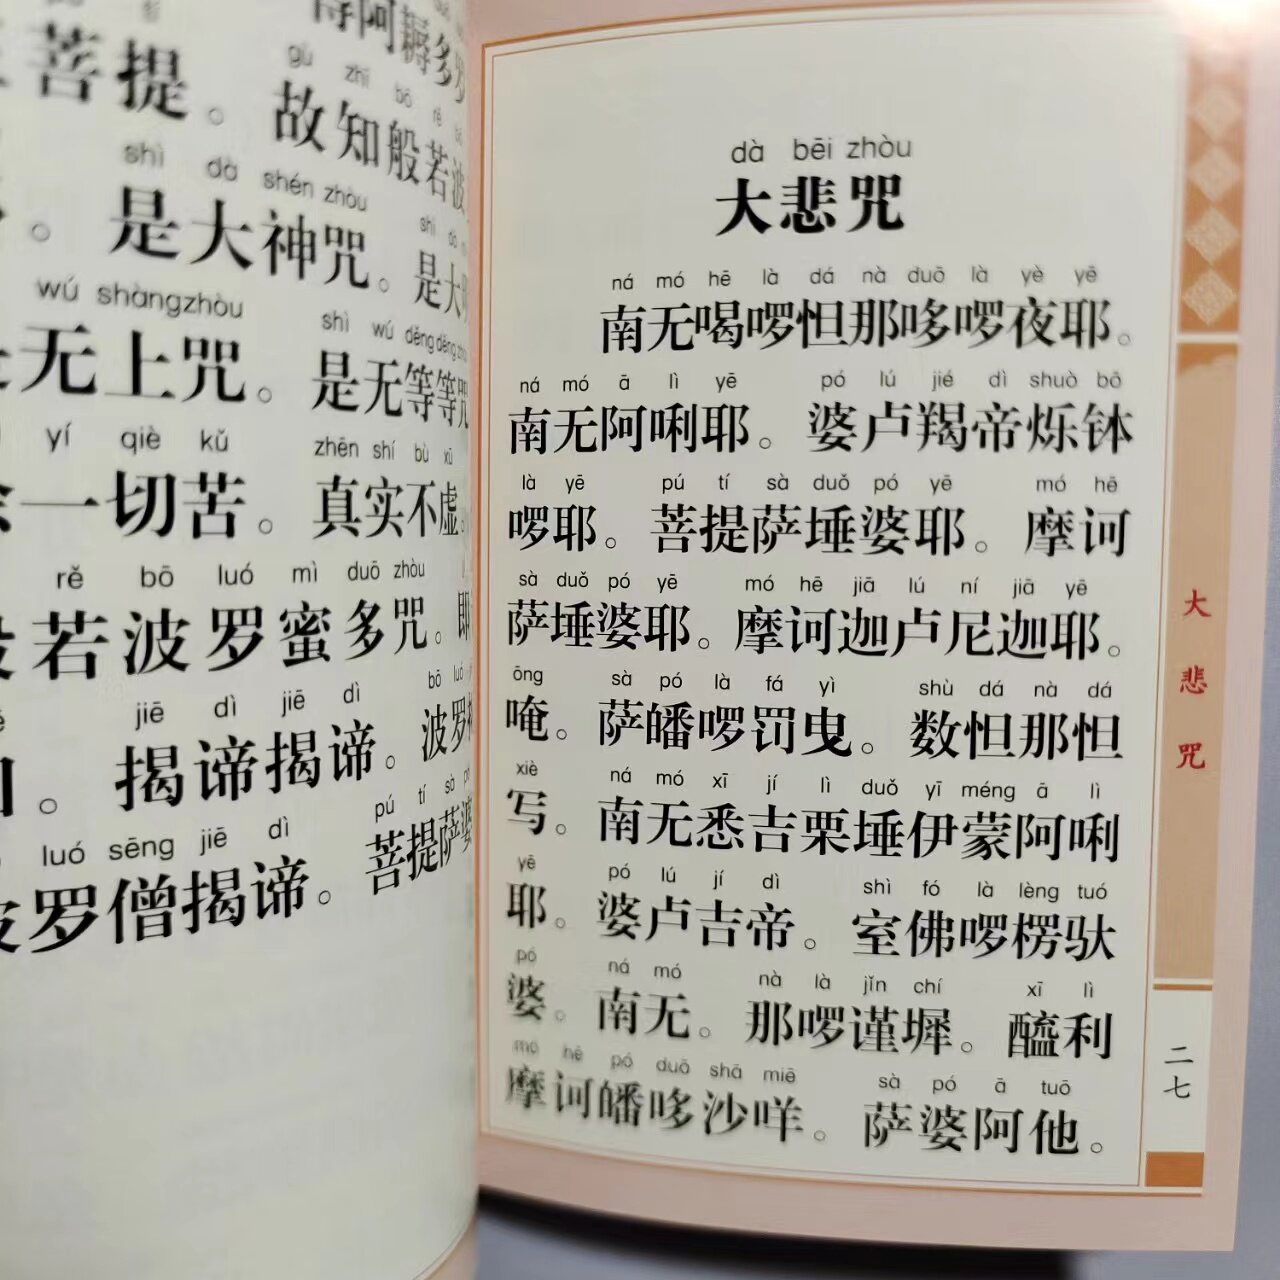 得阿耨多罗
菩提。
gù zhī bō rě
故知般若波
shì dà shén zhòu
是大神咒。
shì dà
是大
wú shàng zhòu
无上咒。
shì wú děng děng
是无等等咒
yí qiè kǔ
一切苦。
zhēn shí bù xū
真实不虚。
rě bō luó mì duō zhòu
若波罗蜜多咒。即
jiē dì jiē dì
揭谛揭谛。
bō luó
波罗
luó sēng jiē dì
罗僧揭谛。
pú tí sà
菩提萨婆
dà bēi zhòu
大悲咒
ná mó hē là dá nà duō là yè yē
南无喝啰怛那哆啰夜耶。
ná mó ā lì yē pó lú jié dì shuò bō
南无阿唎耶。婆卢羯帝烁钵
là yē pú tí sà duǒ pó yē mó hē
啰耶。菩提萨埵婆耶。摩诃
sà duǒ pó yē mó hē jiā lú ní jiā yē
萨埵婆耶。摩诃迦卢尼迦耶。
ōng sà pó là fá yì shù dá nà dá
唵。萨皤啰罚曳。数怛那怛
xiè ná mó xī jí lì duǒ yī méng ā lì
写。南无悉吉栗埵伊蒙阿唎
yē pó lú jí dì shì fó là lèng tuó
耶。婆卢吉帝。室佛啰楞驮
pó ná mó nà là jǐn chí xī lì
婆。南无。那啰谨墀。醯利
mó hē pó duō shā miē sà pó ā tuō
摩诃皤哆沙咩。萨婆阿他。
大悲咒
二七